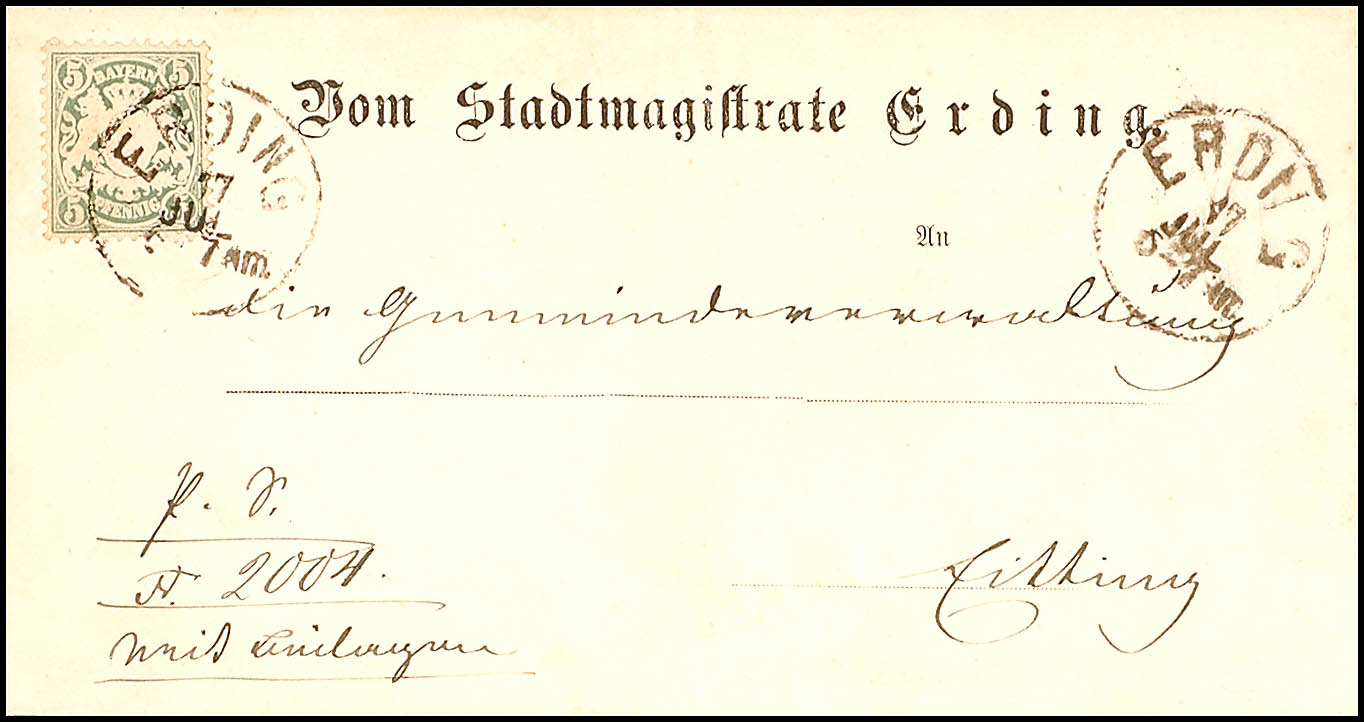 5 BAYERN 5
5 PFENNIG
ERDING
17
JUL
7 am.
Vom Stadtmagistrate Erding.
ERDING
17
JUL
An
die Gemeindeverwaltung
p. S.
N. 2004.
mit Beilagen
Eitting